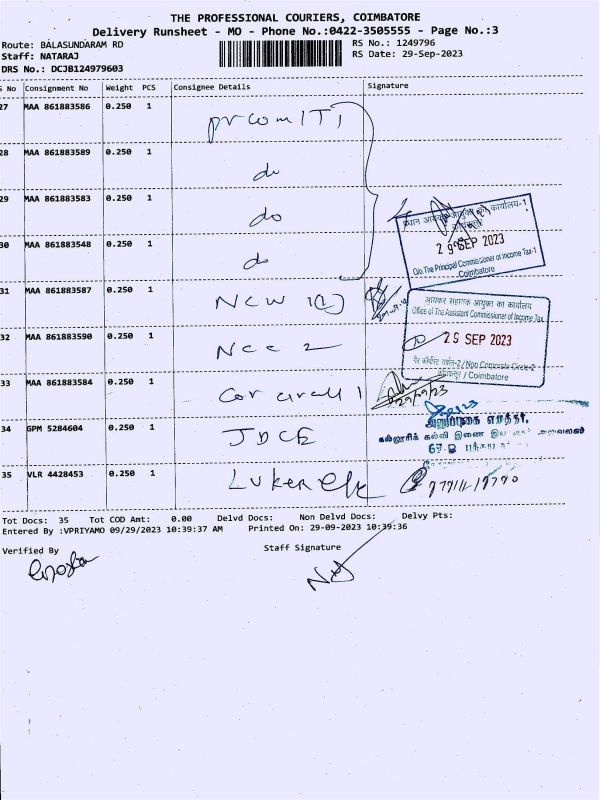 THE PROFESSIONAL COURIERS, COIMBATORE
Delivery Runsheet - MO - Phone No.:0422-3505555 - Page No.:3
Route: BALASUNDARAM RD
RS No.: 1249796
Staff: NATARAJ
RS Date: 29-Sep-2023
DRS No.: DCJB124979603
S No Consignment No Weight PCS Consignee Details Signature
27 MAA 861883586 0.250 1
28 MAA 861883589 0.250 1 do
29 MAA 861883583 0.250 1 do
30 MAA 861883548 0.250 1 do
प्रधान आयकर आयुक्त का कार्यालय-1
29 SEP 2023
O/o The Principal Commissioner of Income Tax-1
Coimbatore
31 MAA 861883587 0.250 1
आयकर सहायक आयुक्त का कार्यालय
Office of The Assistant Commissioner of Income Tax
32 MAA 861883590 0.250 1 NCC 2
29 SEP 2023
गैर कॉर्पोरेट सर्कल-2 / Non Corporate Circle-2
कोयम्बत्तूर / Coimbatore
33 MAA 861883584 0.250 1 Cor circall 1
29/09/23
34 GPM 5284604 0.250 1 JDCE
கல்லூரிக் கல்வி இணை
35 VLR 4428453 0.250 1
Tot Docs: 35 Tot COD Amt: 0.00 Delvd Docs: Non Delvd Docs: Delvy Pts:
Entered By :VPRIYAMO 09/29/2023 10:39:37 AM Printed On: 29-09-2023 10:39:36
Verified By
Staff Signature